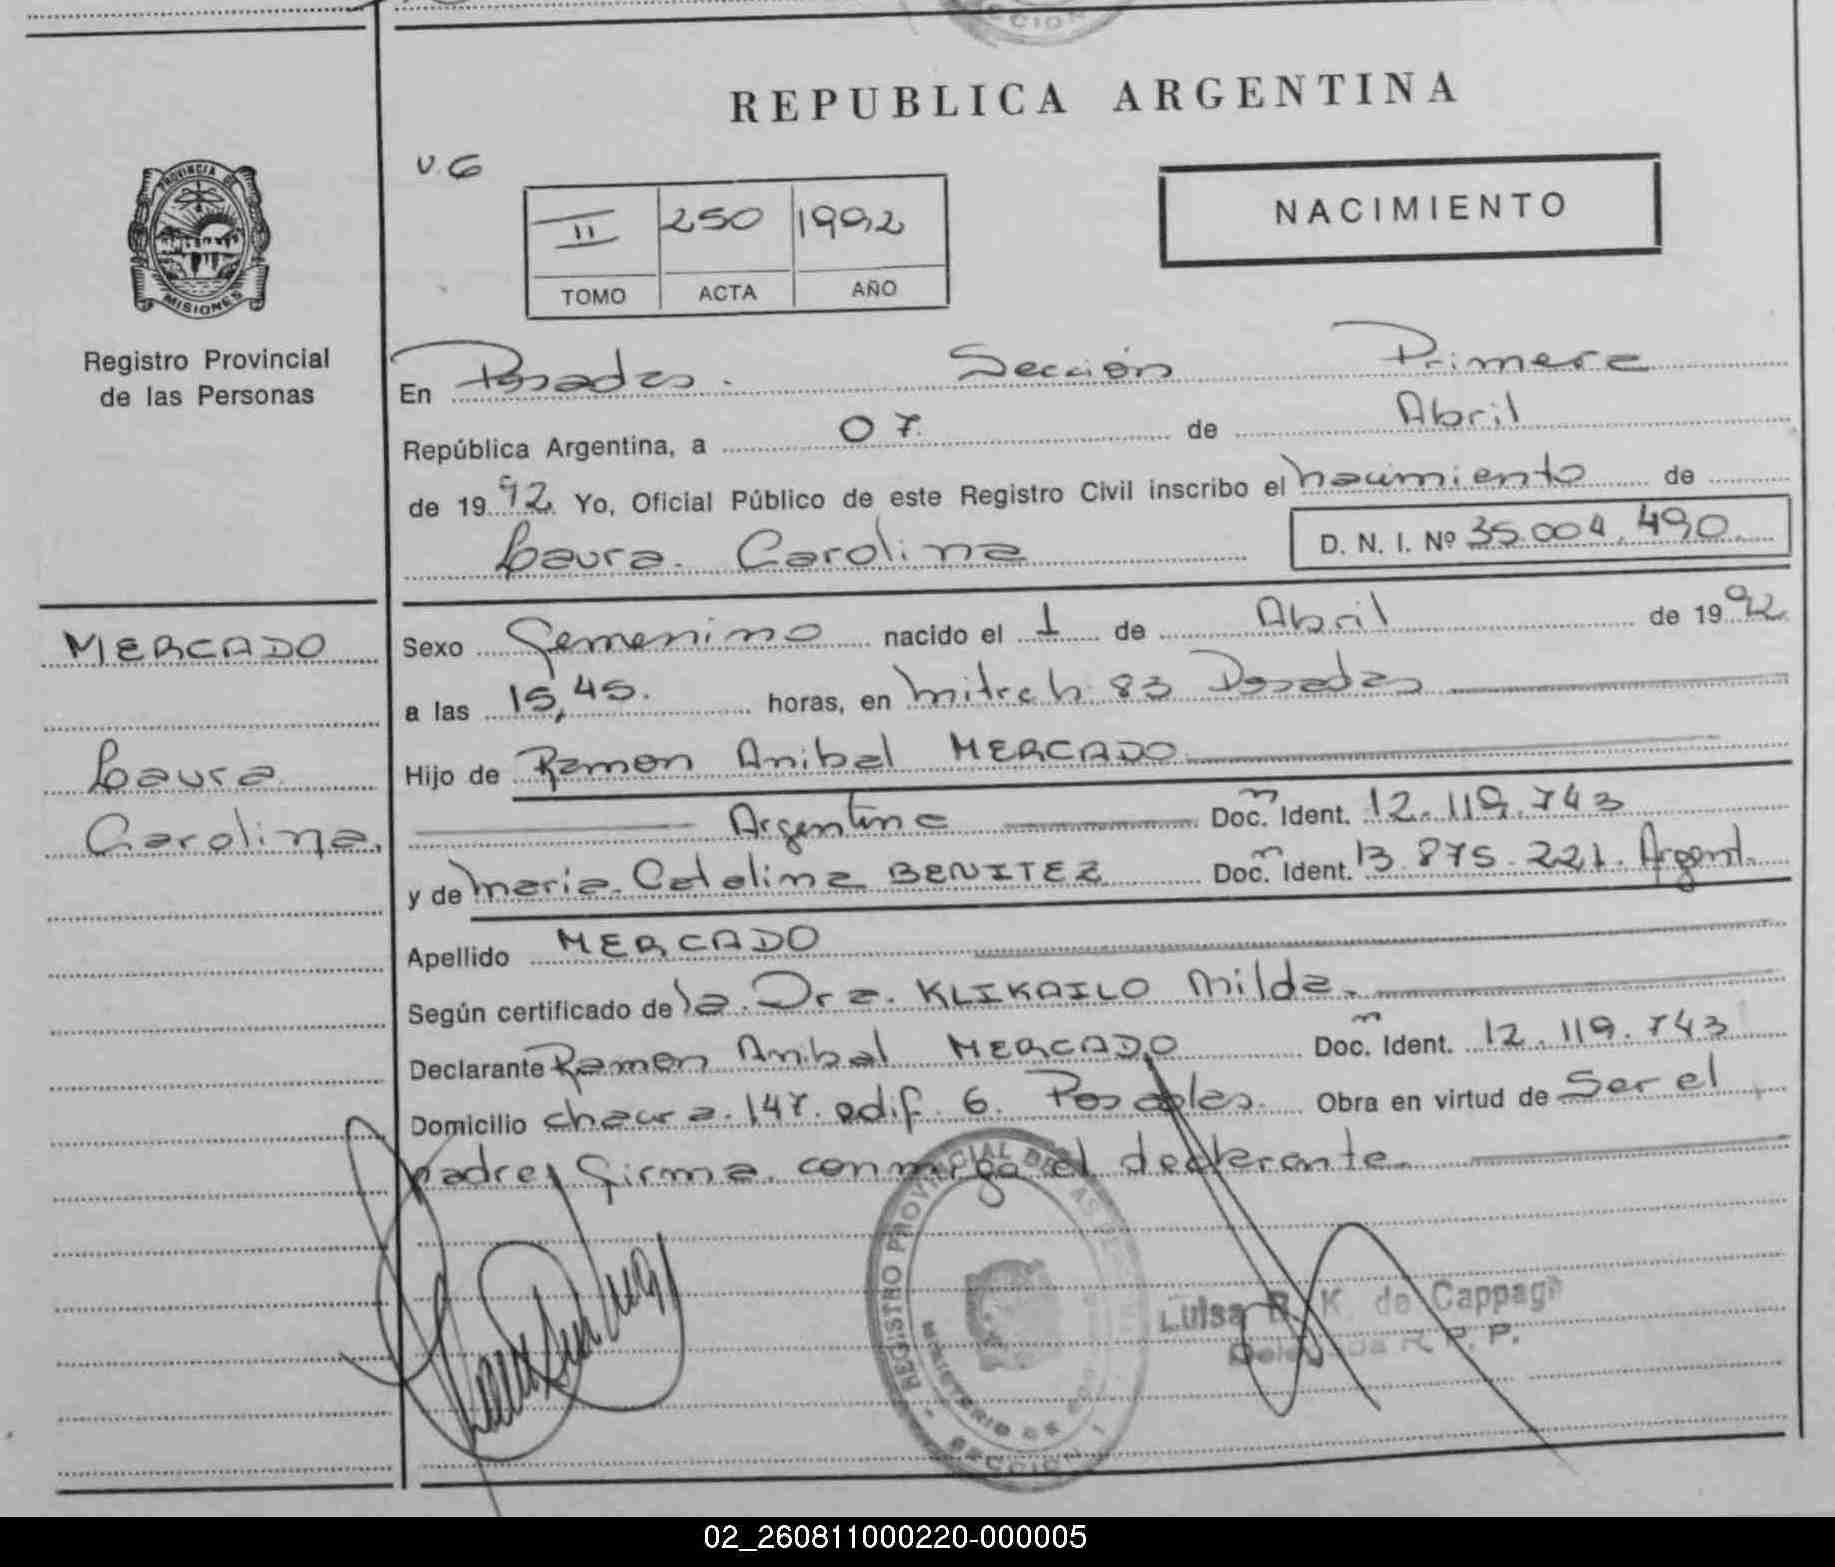 REPUBLICA ARGENTINA
PROVINCIA DE
MISIONES
Registro Provincial
de las Personas
U.G
II 250 1992
TOMO ACTA AÑO
NACIMIENTO
En Posadas. Sección Primera
República Argentina, a 07 de Abril
de 1992 Yo, Oficial Público de este Registro Civil inscribo el nacimiento de
Laura Carolina D. N. I. Nº 35.004.490.
MERCADO
Laura
Carolina.
Sexo Femenino nacido el 1 de Abril de 1992
a las 15,45. horas, en Mitre h. 83 Posadas
Hijo de Ramon Anibal MERCADO
Argentino Doc. Ident. 12.119.743
y de Maria Catalina BENITEZ Doc. Ident. 13.875.221. Argent.
Apellido MERCADO
Según certificado de la Dra. KLIKAILO Milda.
Declarante Ramon Anibal MERCADO Doc. Ident. 12.119.743
Domicilio chacra 147. edif. 6. Posadas. Obra en virtud de Ser el
padre, firma conmigo el declarante.
REGISTRO PROVINCIAL DE LAS
MINISTERIO DE
SECCION 1
Luisa K. de Cappag
R. P. P.
02_260811000220-000005